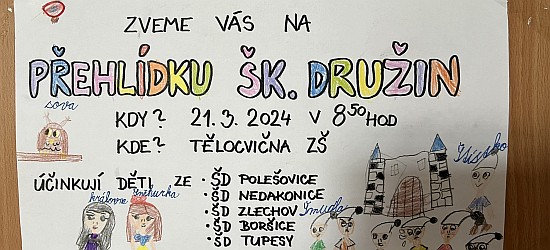 ZVEME VÁS NA
PŘEHLÍDKU ŠK. DRUŽIN
sova
KDY? 21.3. 2024 V 8⁵⁰ HOD
KDE? TĚLOCVIČNA ZŠ
ÚČINKUJÍ DĚTI ZE • ŠD POLEŠOVICE
královna Sněhurka
• ŠD NEDAKONICE
• ŠD ZLECHOV
Šmudla
• ŠD BORŠICE
• ŠD TUPESY